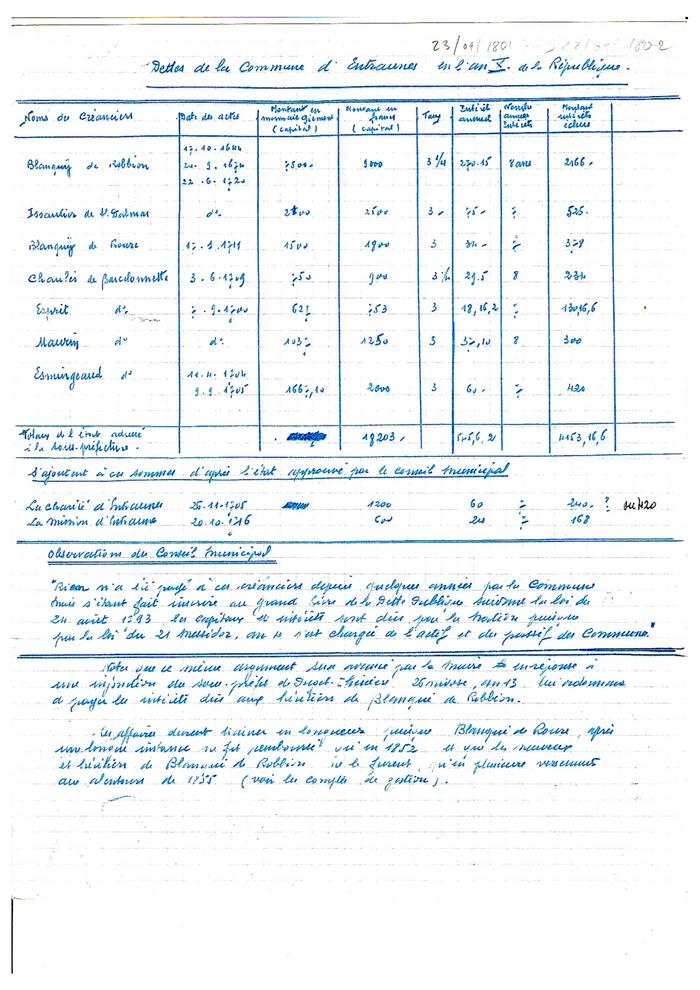 23/09/1801 -> 22/09/1802
Dettes de la Commune d'Entraunes en l'an X. de la République.
Noms du Créanciers | Date des actes | Montant en monnaie Giemont (capital) | Montant en francs (capital) | Taux | Intérêt annuel | Nombre années Intérêts | Montant intérêts échus
17.10.1644
Blanquy de Robbion | 20.9.1674 | 7500 | 9000 | 3 % | 270.15 | 8 ans | 2166.
22.6.1720
Issautier de St Dalmas | do | 2100 | 2500 | 3 | 75 | 7 | 525.
Blanquy de Roure | 17.9.1711 | 1500 | 1800 | 3 | 54 | 7 | 378
Charles de Barcelonnette | 3.6.1709 | 750 | 900 | 3 % | 29.5 | 8 | 234
Esprit do | 7.9.1700 | 627 | 753 | 3 | 18,16,2 | 7 | 130,16,6
Maurin do | do | 1037 | 1250 | 3 | 37,10 | 8 | 300
Esmingeaud do | 11.4.1704
9.9.1705 | 1667,10 | 2000 | 3 | 60. | 7 | 420
Totaux de l'état adressé à la sous-préfecture. | 18203. | 545,6,2 | 4153,16,6
S'ajoutent à ces sommes d'après l'état approuvé par le conseil municipal
La charité d'Entraunes 25.11.1705 1200 60 7 240. ? ou 420
La mission d'Entraune 20.10.1716 600 24 7 168
Observations du Conseil Municipal
"Rien n'a été payé à ces créanciers depuis quelques années par la Commune
mais s'étant fait inscrire au grand livre de la Dette Publique suivant la loi du
24 août 1793 les capitaux et intérêts sont dûs par la Nation puisque
par la loi du 21 messidor, an 4 s'est chargée de l'actif et du passif des Communes."
Notez que ce même argument sera avancé par la mairie en réponse à
une injonction du sous-préfet de 26 nivose, an 13 lui ordonnant
de payer les intérêts dûs aux héritiers de Blanqui de Robbion.
Les affaires durent trainer en longueur puisque Blanqui de Roure, après
une longue instance ne fut remboursé qu'en 1852 et que les neveux
et héritiers de Blanqui de Robbion ne le furent qu'en plusieurs versements
aux alentours de 1855 (voir les comptes de gestion).